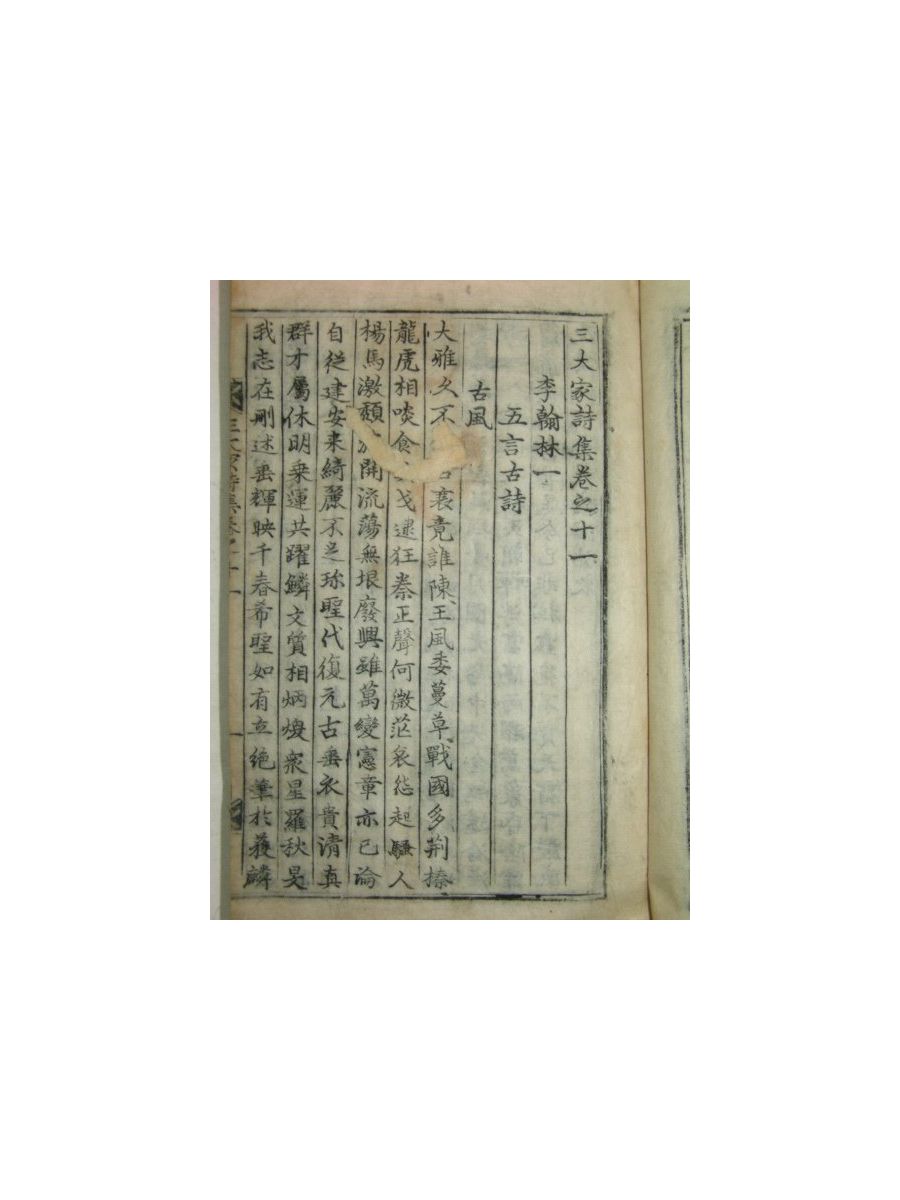 三大家詩集卷之十一
李翰林一
五言古詩
古風
大雅久不 衰竟誰陳王風委蔓草戰國多荆榛
龍虎相啖食 戈逮狂秦正聲何微茫哀怨起騷人
楊馬激頹 開流蕩無垠廢興雖萬變憲章亦已淪
自從建安来綺麗不足珎聖代復元古垂衣貴清真
群才屬休明乗運共躍鱗文質相炳煥衆星羅秋旻
我志在刪述垂輝映千春希聖如有立絶筆於獲麟
三大家詩集卷